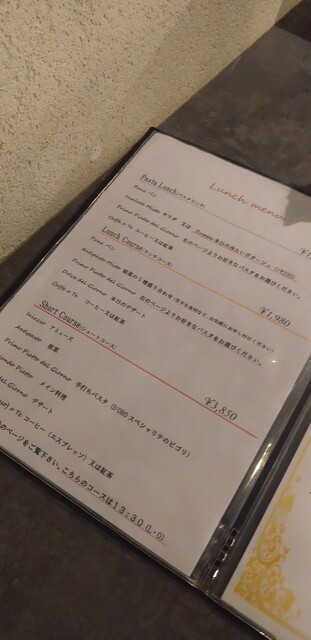 Lunch menu
Pasta Lunch(パスタランチ)
Pane パン
Insalata Mista サラダ 又は Zuppa 本日の冷たいポタージュ (+¥200)
Primo Piatto del Giorno 右のページよりお好きなパスタをお選びください。
Caffè o Tè コーヒー又は紅茶
Lunch Course(ランチコース) ¥1,980
Pane パン
Antipasto Misto 前菜の
Primo Piatto del Giorno 右のページよりお好きなパスタをお選びください。
Dolce del Giorno 本日のデザート
Caffè o Tè コーヒー又は紅茶
Short Course(ショートコース) ¥3,850
Inizio アミューズ
Antipasto 前菜
Primo Piatto del Giorno 手打ちパスタ
Piatto メイン料理
del Giorno デザート
o Tè コーヒー(エスプレッソ) 又は紅茶
のページをご覧下さい。こちらのコースは13:30(L.O)